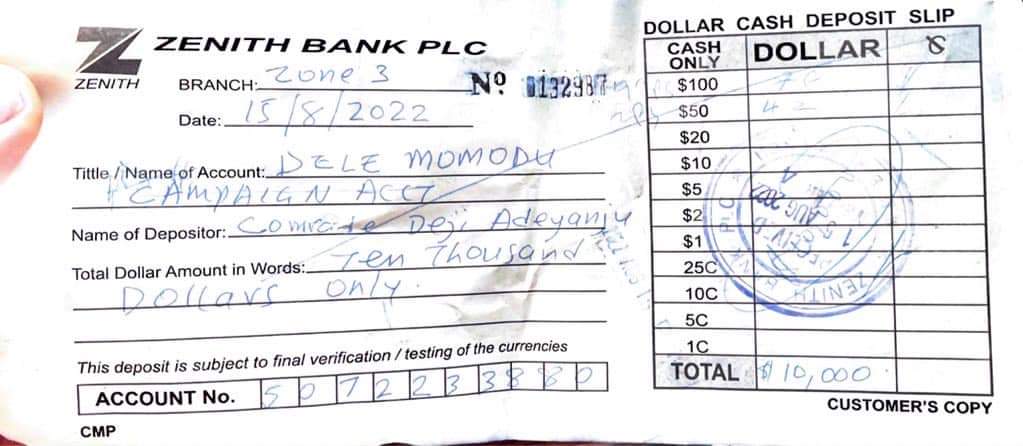 ZENITH
ZENITH BANK PLC
BRANCH: Zone 3
Nº 0132987
Date: 15/8/2022
Tittle / Name of Account: DELE MOMODU
CAMPAIGN ACCT
Name of Depositor: Comrade Deji Adeyanju
Total Dollar Amount in Words: Ten Thousand
Dollars only.
This deposit is subject to final verification / testing of the currencies
ACCOUNT No. 5072233880
CMP
DOLLAR CASH DEPOSIT SLIP
CASH ONLY DOLLAR
$100
$50
$20
$10
$5
$2
$1
25C
10C
5C
1C
TOTAL $10,000
ZENITH BANK PLC
AUG 2022
CUSTOMER'S COPY